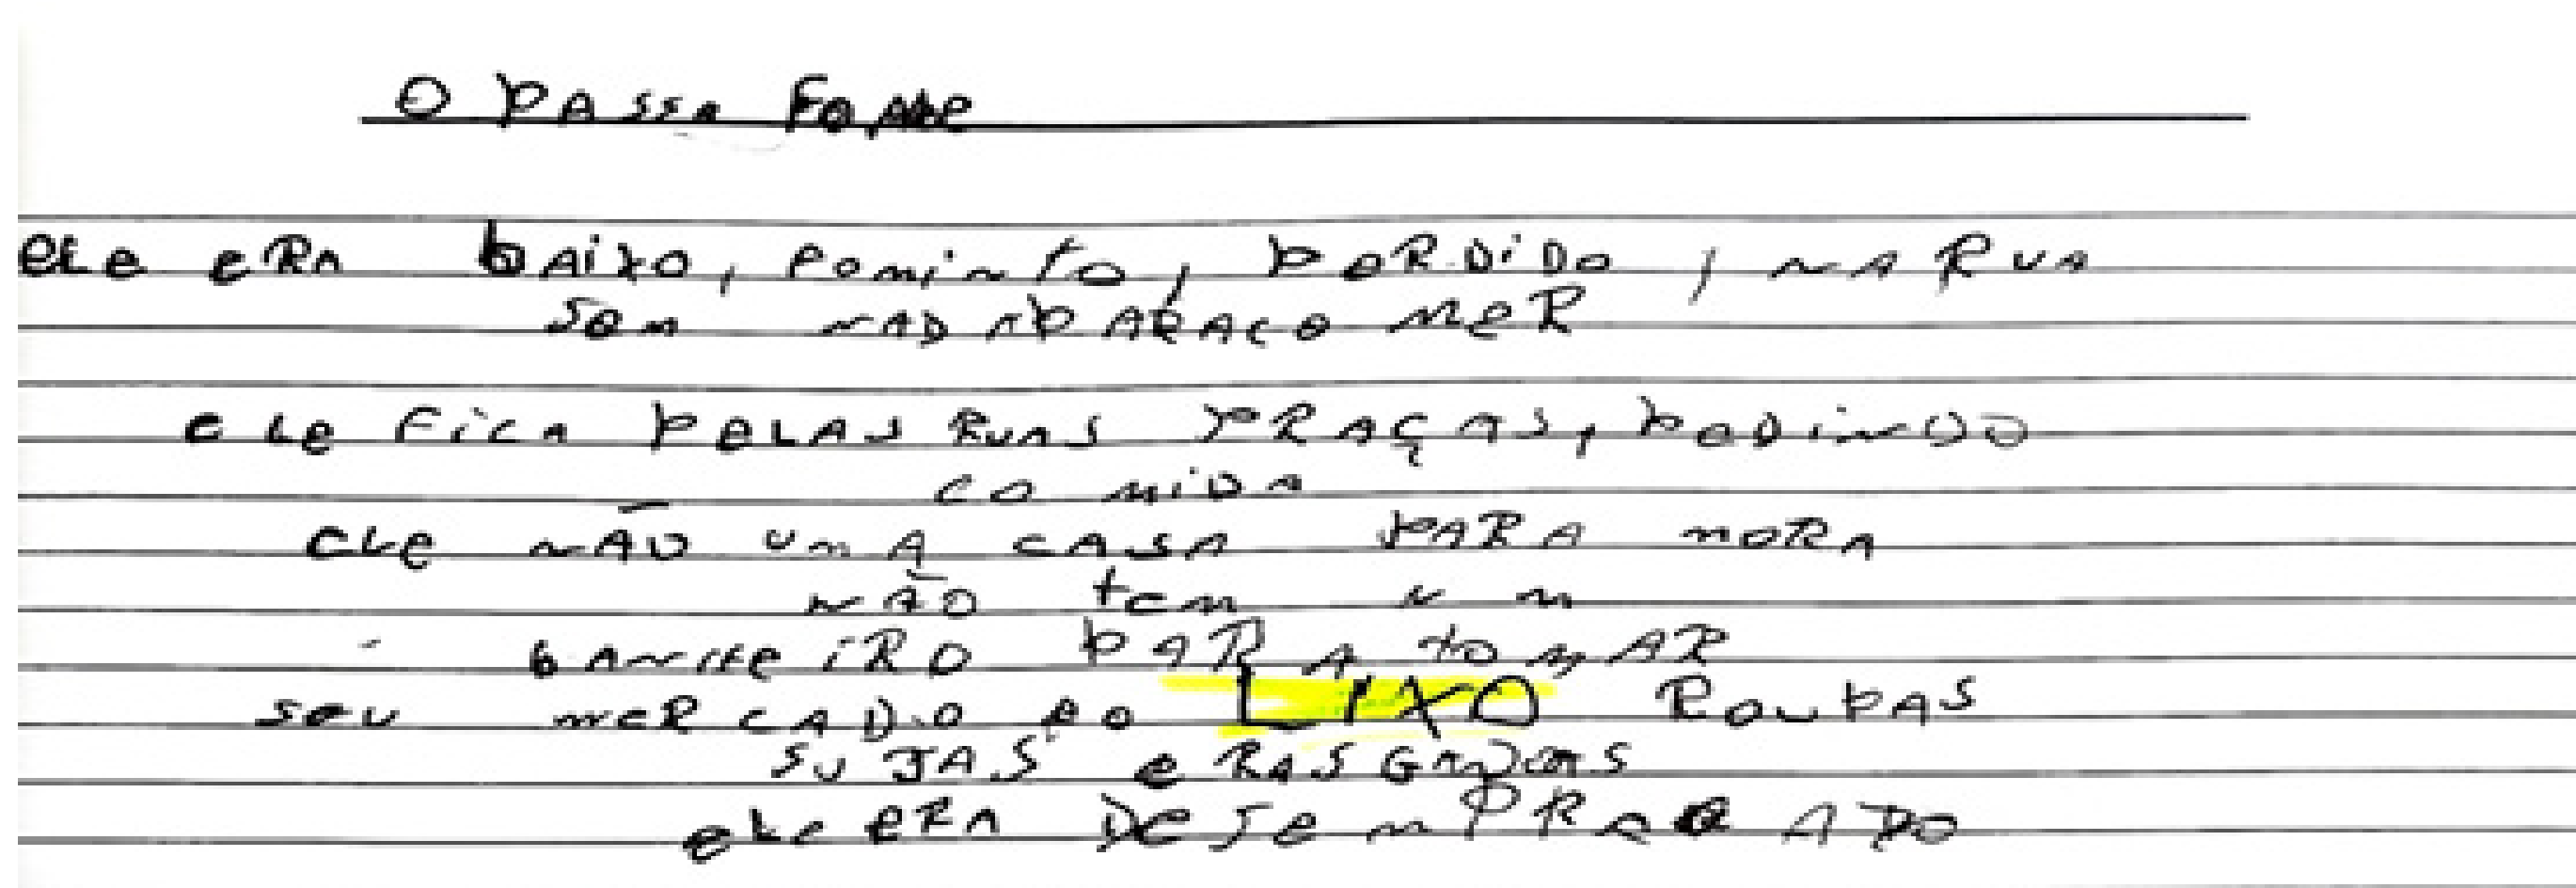 O PASSA FOME
ELE ERA BAIXO, FOMINTO, PERDIDO, NA RUA
SEM NADAPARACOMER
ELE FICA PELAS RUAS PRAÇAS, PEDINDO
COMIDA
ELE NÃO UMA CASA PARA MORA
NÃO tem UM
BANHEIRO PARA tOMAR
SEU MERCADO EO LIXO ROUPAS
SUJAS E RASGADAS
ELE ERA